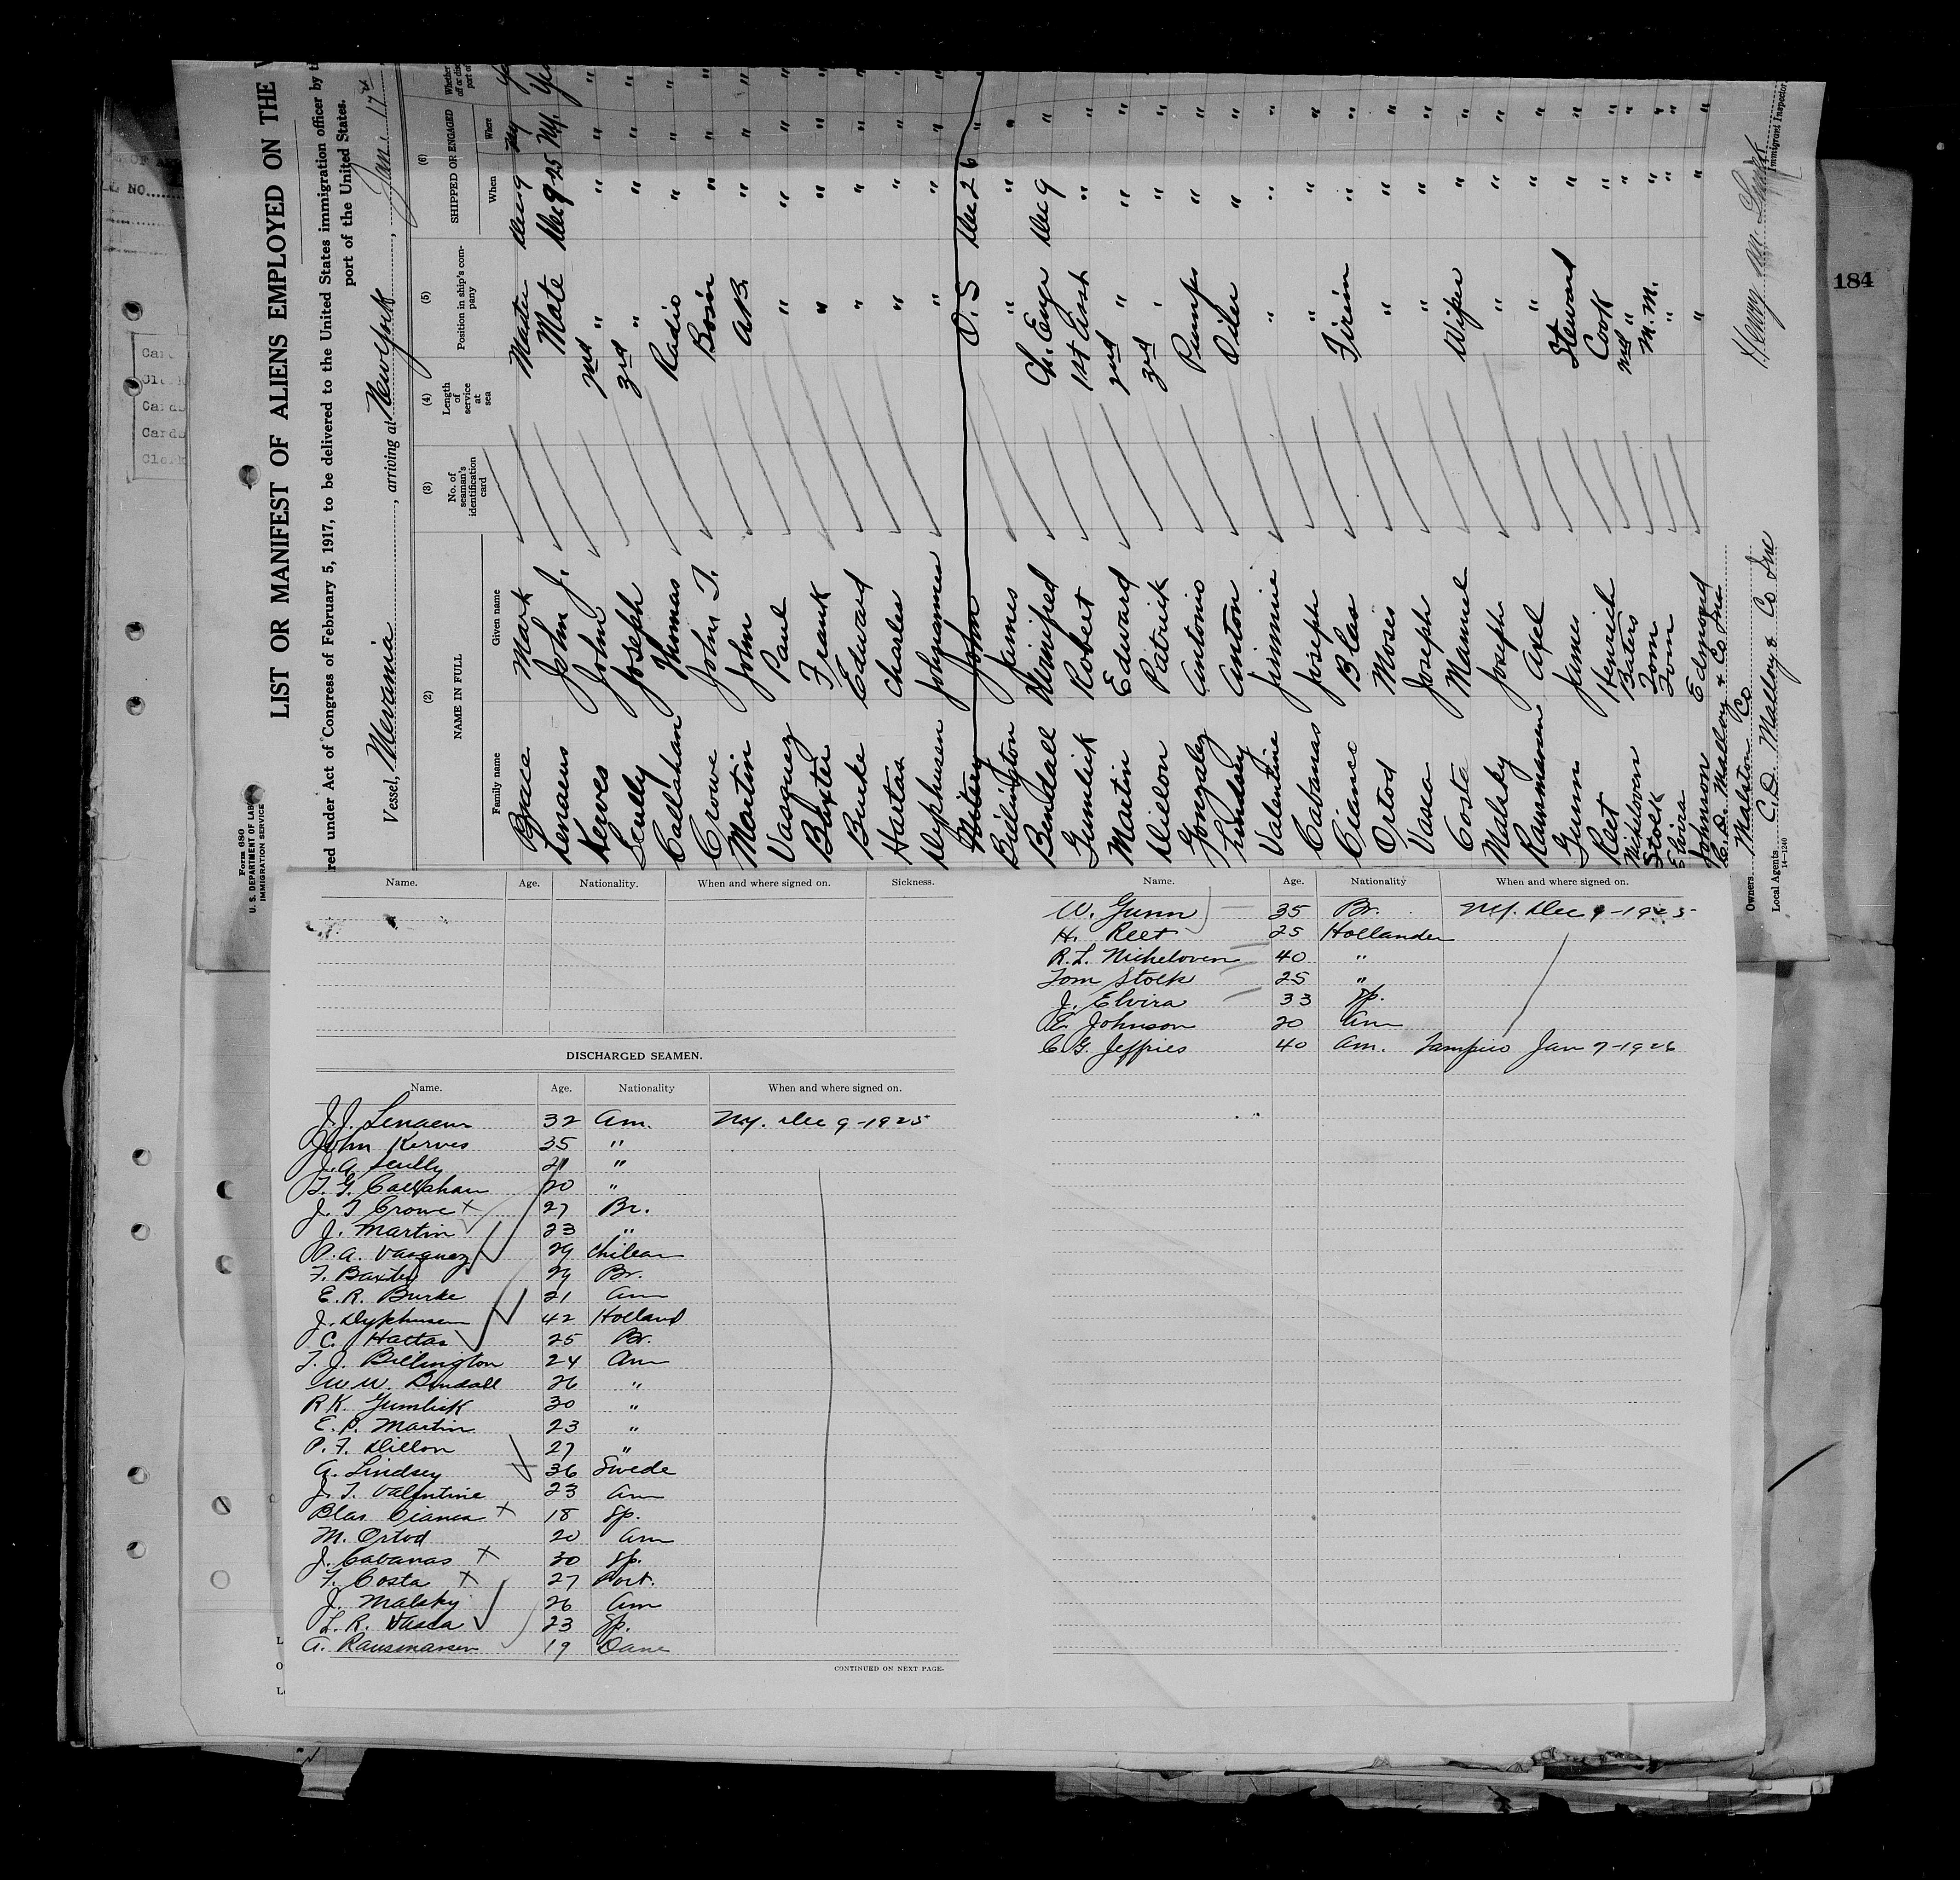 184
Form 680
U. S. DEPARTMENT OF LAB
IMMIGRATION SERVICE
LIST OR MANIFEST OF ALIENS EMPLOYED ON THE
red under Act of Congress of February 5, 1917, to be delivered to the United States immigration officer by th
port of the United States.
Vessel, , arriving at New York , Jan 17
(2) (3) (4) (5) (6)
NAME IN FULL
Family name Given name
No. of seaman's identification card
Length of service at sea
Position in ship's company
SHIPPED OR ENGAGED
When Where
Brace Mark Master Dec 9 NY
Lenaens John J. Mate Dec 9-25 NY.
Kerves John 2nd " " "
Scully Joseph 3rd " " "
Callahan Thomas Radio " "
Crowe John T. Bos'n " "
Martin John A.B. " "
Vasquez Paul " " "
Baxter Frank " " "
Burke Edward " " "
Hartas Charles " " "
Dyphusen Johannes " " "
John O.S Dec 26 "
Billington James " " "
Bendall Winifred Ch. Engr Dec 9 "
Gumlick Robert 1st Asst " "
Martin Edward 2nd " " "
Dillon Patrick 3rd " " "
Gonzalez Antonio Pumps " "
Lindsey Anton Oiler " "
Valentine Jimmie " " "
Cabanas Joseph " " "
Cianca Blas Firem " "
Ortod Moses " " "
Vasca Joseph " " "
Costa Manuel Wiper " "
Malsky Joseph " " "
Rausmansen Axel " " "
Gunn James Steward " "
Reet Henrich Cook " "
Micheloven Baters 2nd " " "
Stolk Tom M.M. " "
Elvira Tom " " "
Johnson Edmond " " "
C. D. Mallory & Co Inc
Owners Matston Co
Local Agents C.D. Mallory & Co Inc
Immigrant Inspector
14—1240
Name. Age. Nationality. When and where signed on. Sickness.
DISCHARGED SEAMEN.
Name. Age. Nationality When and where signed on.
J.J. Lenaens 32 Am. NY. Dec 9-1925
John Kerves 35 "
J.A. Scully 21 "
T. G. Callahan 20 "
J. T Crowe x 27 Br.
J. Martin 23 "
P. A. Vasquez 29 Chilean
F. Baxter 29 Br.
E. R. Burke 21 Am
J. Dyphusen 42 Holland
C. Hartas 25 Br.
T. J. Billington 24 Am
W W. Bendall 26 "
R K. Gumlick 30 "
E. P. Martin 23 "
P. F. Dillon 27 "
A. Lindsey 36 Swede
J. T. Valentine 23 Am
Blas Cianca x 18 Sp.
M. Ortod 20 Am
J. Cabanas x 30 Sp.
F. Costa x 27 Port.
J. Malsky 26 Am
L. R. Vasca 23 Sp.
A. Rausmansen 19 Dane
CONTINUED ON NEXT PAGE.
Name. Age. Nationality When and where signed on.
W. Gunn 35 Br. NY. Dec 9-1925
H. Reet 25 Hollander
R. L. Micheloven 40 "
Tom Stolk 25 "
J. Elvira 33 Sp.
E Johnson 20 Am
C. G. Jeffries 40 Am. Tampico Jan 7-1926